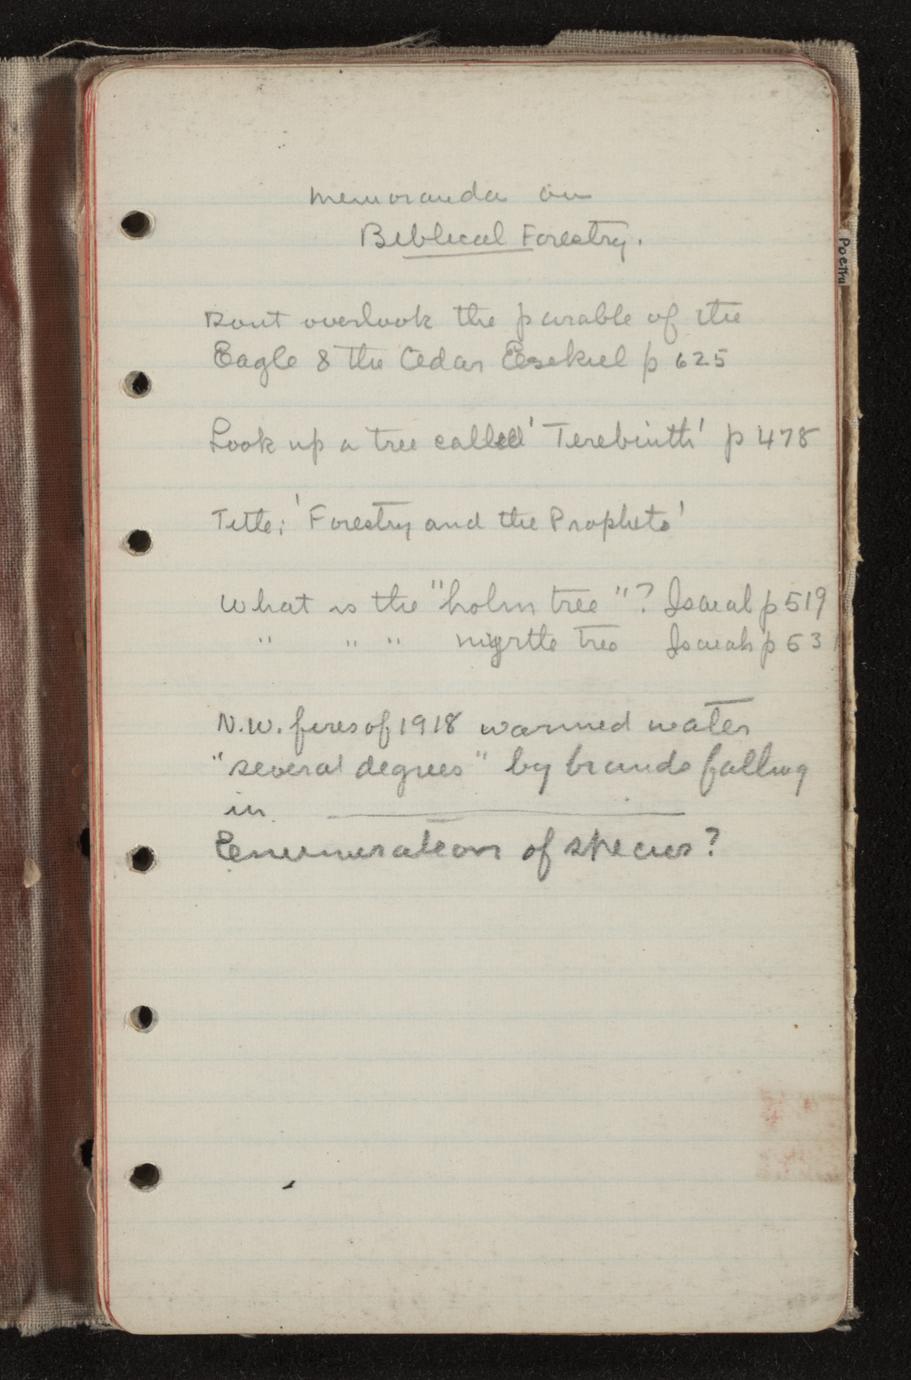 Memoranda on
Biblical Forestry.
Poetry
Dont overlook the parable of the
Eagle & the Cedar Ezekiel p 625
Look up a tree called 'Terebinth' p 478
Title: 'Forestry and the Prophets'
What is the "holm tree"? Isaiah p 519
" " " myrtle tree Isaiah p 53
N.W. fires of 1918 warmed water
"several degrees" by brands falling
in
Enumeration of species?